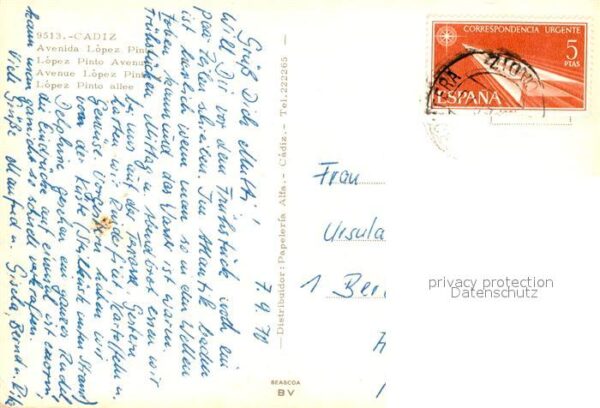 9513.-CADIZ
Avenida López Pinto
López Pinto Avenue
Avenue López Pinto
López Pinto allee
7.9.70
Grüß Dich Mutti!
Will Dir vor dem Frühstück noch ein
paar Zeilen schreiben. Im Atlantik baden
ist herrlich wenn man so in den Wellen
toben kann und das Wasser ist warm.
Frühstücken, Mittag u. Abendbrot essen wir
bei uns auf der Terrasse. Gestern
hatten wir Rinderfilet Kartoffeln u.
Gemüse. Vorgestern haben wir
von der Küste (Steilküste unten Strand)
Delphine gesehen ein ganzes Rudel
die Eindrücke auf einmal ist enorm,
kann man garnicht so schnell verkraften.
Viele Grüße Manfred u. Gisela, Bernd u.
—Distribuidor: Papelería Alfa.- Cádiz.- Tel. 222265 —
BEASCOA
BV
CORRESPONDENCIA URGENTE
5
PTAS
ESPAÑA
Frau
Ursula
1 Ber
privacy protection
Datenschutz